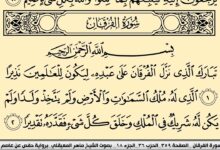 سُورَةُ الْفُرْقَانِ
بِسْمِ اللَّهِ الرَّحْمَنِ الرَّحِيمِ
تَبَارَكَ الَّذِي نَزَّلَ الْفُرْقَانَ عَلَى عَبْدِهِ لِيَكُونَ لِلْعَالَمِينَ نَذِيرًا
١ الَّذِي لَهُ مُلْكُ السَّمَاوَاتِ وَالْأَرْضِ وَلَمْ يَتَّخِذْ وَلَدًا وَلَمْ
يَكُن لَّهُ شَرِيكٌ فِي الْمُلْكِ وَخَلَقَ كُلَّ شَيْءٍ فَقَدَّرَهُ تَقْدِيرًا ٢
سورة الفرقان الصفحة ٣٥٩ الحزب ٣٦ الجزء ١٨ بصوت الشيخ ماهر المعيقلي برواية حفص عن عاصم